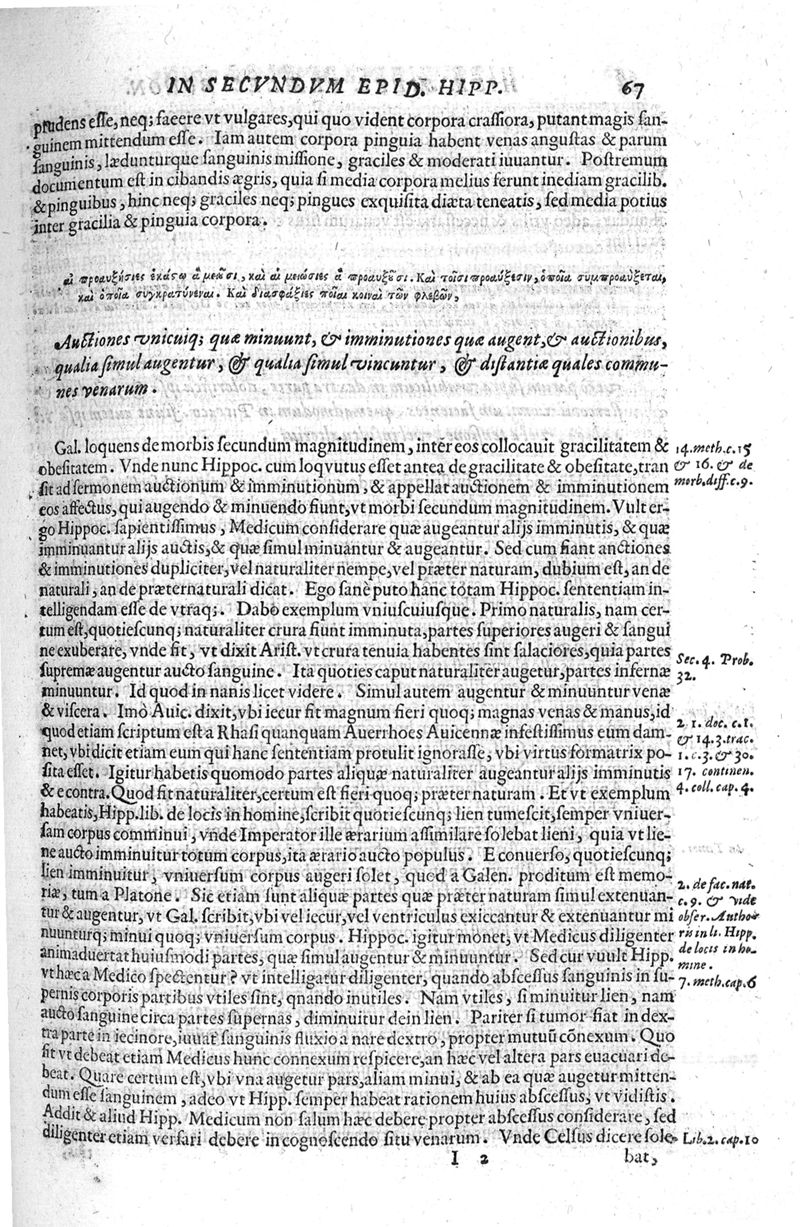 IN SECVNDVM EPID. HIPP. 67
prudens esse, neq; facere vt vulgares, qui quo vident corpora crassiora, putant magis san-
guinem mittendum esse. Iam autem corpora pinguia habent venas angustas & parum
sanguinis, lædunturque sanguinis missione, graciles & moderati iuuantur. Postremum
documentum est in cibandis ægris, quia si media corpora melius ferunt inediam gracilib.
& pinguibus, hinc neq; graciles neq; pingues exquisita diæta teneatis, sed media potius
inter gracilia & pinguia corpora.
αἱ προαυξήσιες ἑκάστῳ ἃ μειῶσι, καὶ αἱ μειώσιες ἃ προαυξοῦσι. Καὶ τοῖσι προαύξεσιν, ὁποῖα συμπροαύξεται,
καὶ ὁποῖα συγκρατύνεναι. Καὶ διασφάξιες ποῖαι κοιναὶ τῶν φλεβῶν,
Auctiones vnicuiq; quæ minuunt, & imminutiones quæ augent, & auctionibus,
qualia simul augentur, & qualia simul vincuntur, & distantiæ quales commu-
nes venarum.
Gal. loquens de morbis secundum magnitudinem, inter eos collocauit gracilitatem &
obesitatem. Vnde nunc Hippoc. cum loqvutus esset antea de gracilitate & obesitate, tran
sit ad sermonem auctionum & imminutionum, & appellat auctionem & imminutionem
eos affectus, qui augendo & minuendo fiunt, vt morbi secundum magnitudinem. Vult er-
go Hippoc. sapientissimus, Medicum considerare quæ augeantur alijs imminutis, & quæ
imminuantur alijs auctis, & quæ simul minuantur & augeantur. Sed cum fiant anctiones
& imminutiones dupliciter, vel naturaliter nempe, vel præter naturam, dubium est, an de
naturali, an de præternaturali dicat. Ego sanè puto hanc totam Hippoc. sententiam in-
telligendam esse de vtraq;. Dabo exemplum vniuscuiusque. Primo naturalis, nam cer-
tum est, quotiescunq; naturaliter crura fiunt imminuta, partes superiores augeri & sangui
ne exuberare, vnde fit, vt dixit Arist. vt crura tenuia habentes sint salaciores, quia partes
supremæ augentur aucto sanguine. Ita quoties caput naturaliter augetur, partes infernæ
minuuntur. Id quod in nanis licet videre. Simul autem augentur & minuuntur venæ
& viscera. Imò Auic. dixit, vbi iecur fit magnum fieri quoq; magnas venas & manus, id
quod etiam scriptum est a Rhasi quanquam Auerrhoes Auicennæ infestissimus eum dam-
net, vbi dicit etiam eum qui hanc sententiam protulit ignorasse, vbi virtus formatrix po-
sita esset. Igitur habetis quomodo partes aliquæ naturaliter augeantur alijs imminutis
& e contra. Quod fit naturaliter, certum est fieri quoq; præter naturam. Et vt exemplum
habeatis, Hipp. lib. de locis in homine, scribit quotiescunq; lien tumescit, semper vniuer-
sam corpus comminui, vnde Imperator ille ærarium assimilare solebat lieni, quia vt lie-
ne aucto imminuitur totum corpus, ita ærario aucto populus. E conuerso, quotiescunq;
lien imminuitur, vniuersum corpus augeri solet, quod a Galen. proditum est memo-
riæ, tum a Platone. Sic etiam sunt aliquæ partes quæ præter naturam simul extenuan-
tur & augentur, vt Gal. scribit, vbi vel iecur, vel ventriculus exiccantur & extenuantur mi
nuunturq; minui quoq; vniuersum corpus. Hippoc. igitur monet, vt Medicus diligenter
animaduertat huiusmodi partes, quæ simul augentur & minuuntur. Sed cur vuult Hipp.
vt hæc a Medico spectentur? vt intelligatur diligenter, quando abscessus sanguinis in su-
pernis corporis partibus vtiles sint, qnando inutiles. Nam vtiles, si minuitur lien, nam
aucto sanguine circa partes supernas, diminuitur dein lien. Pariter si tumor fiat in dex-
tra parte in iecinore, iuuat sanguinis fluxio a nare dextro, propter mutuũ cõnexum. Quo
fit vt debeat etiam Medicus hunc connexum respicere, an hæc vel altera pars euacuari de-
beat. Quare certum est, vbi vna augetur pars, aliam minui, & ab ea quæ augetur mitten-
dum esse sanguinem, adeo vt Hipp. semper habeat rationem huius abscessus, vt vidistis.
Addit & aliud Hipp. Medicum non salum hæc debere propter abscessus considerare, sed
diligenter etiam versari debere in cognoscendo situ venarum. Vnde Celsus dicere sole-
I 2 bat,
14. meth. c. 15
& 16. & de
morb. diff. c. 9.
Sec. 4. Prob.
32.
2. 1. doc. c. 1.
& 14. 3. trac.
1. c. 3. & 30.
17. continen.
4. coll. cap. 4.
2. de fac. nat.
c. 9. & vide
obser. Author
ris in li. Hipp.
de locis in ho-
mine.
7. meth. cap. 6
Lib. 2. cap. 10